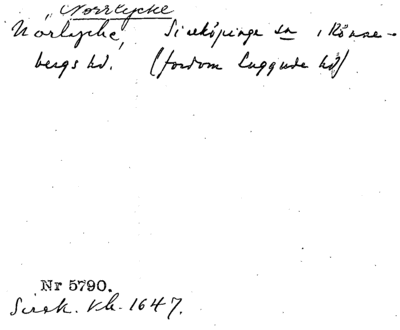 "Norrlycke
Norlycke, Sireköpinge sn, Rönne-
bergs hd. (fordom Luggude hd)
Nr 5790.
Sirek. kb. 1647.